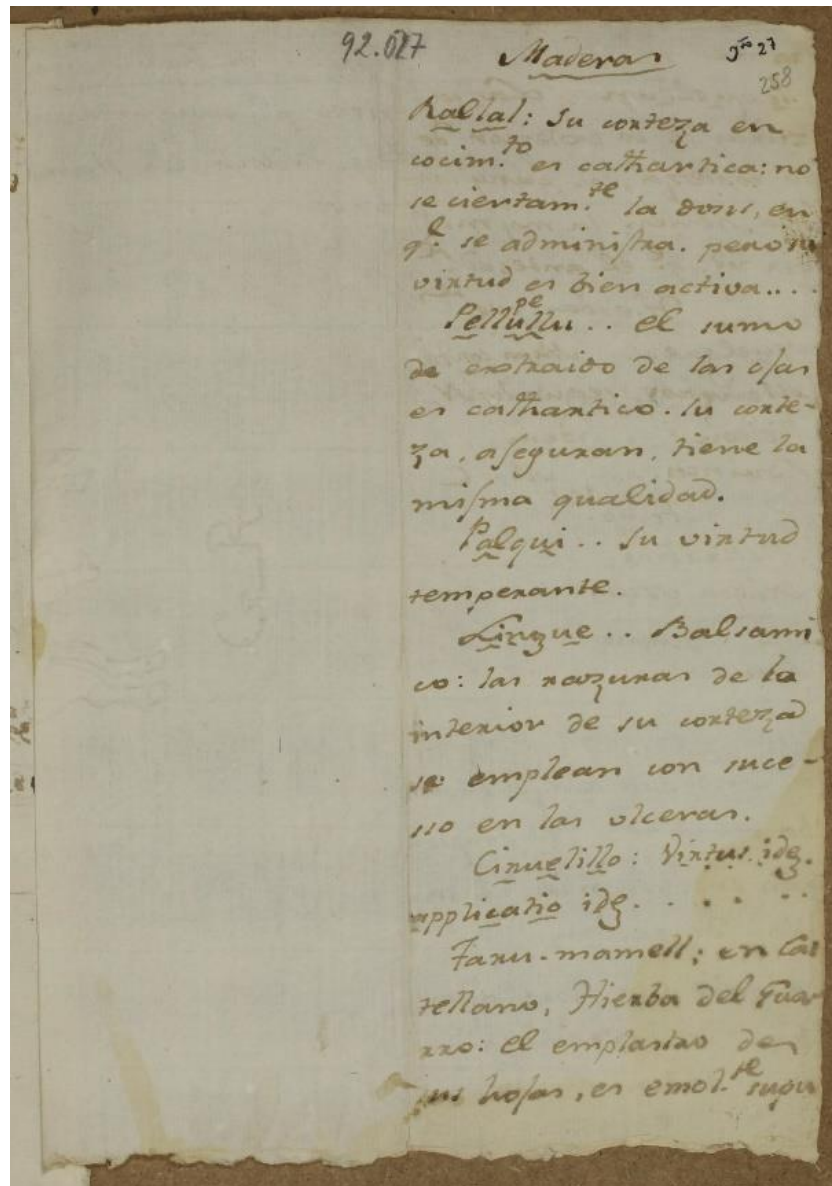 92.027
Maderas
27
258
Rallal: Su corteza en
cocim.to es cathartica: no
se ciertam.te la dosis, en
q.e se administra. pero su
virtud es bien activa....
Pellullu.. el sumo
pe
de extraido de las ojas
es cathartico. su corte-
za, aseguran, tiene la
misma qualidad.
Palqui.. su virtud
temperante.
Lingue.. Balsami
co: las razuras de la
interior de su corteza
se emplean con suce-
sso en las ulceras.
Ciruelillo: Virtus. idz.
applicatio idz. . . . . .
Taru-mamell: en Cas
tellano, Hierba del Guar
rro: el emplastro de
sus hojas, es emol.te supu